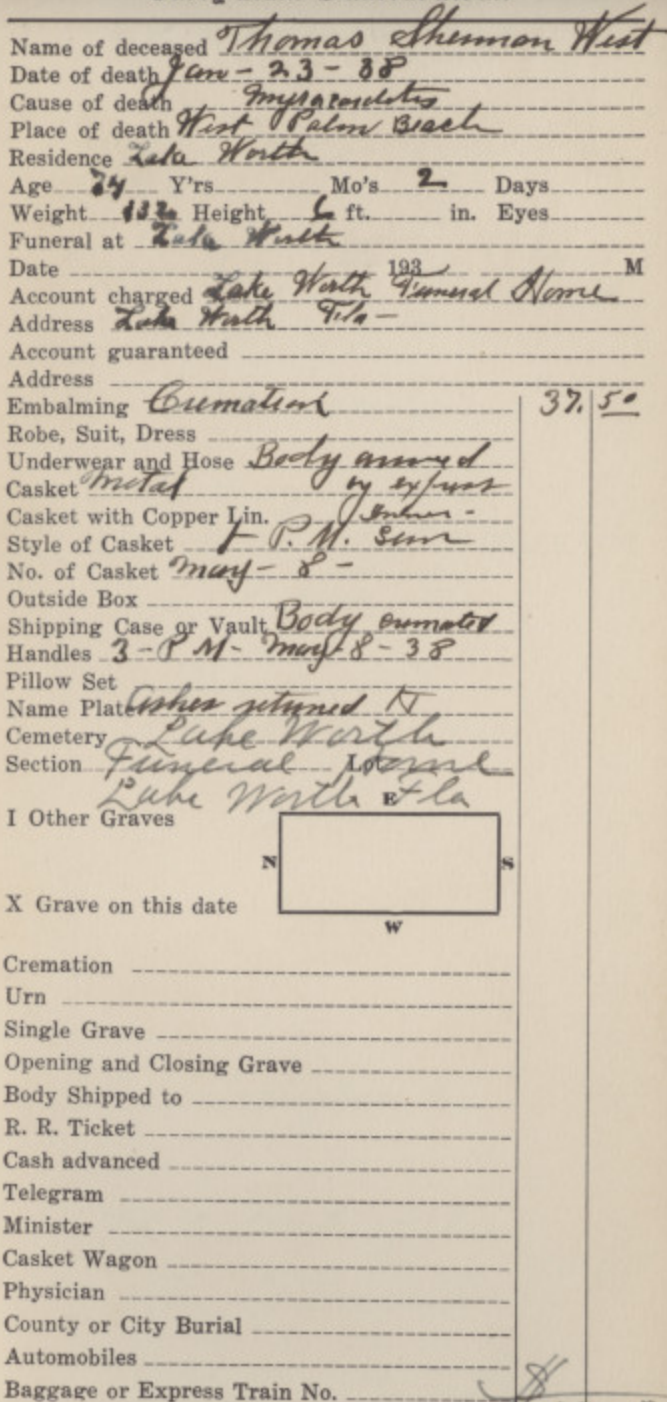 Name of deceased Thomas Sherman West
Date of death Jan - 23 - 38
Cause of death
Place of death West Palm Beach
Residence Lake Worth
Age 74 Y'rs Mo's 2 Days
Weight 132 Height 6 ft. in. Eyes
Funeral at Lake Worth
Date 193 M
Account charged Lake Worth Funeral Home
Address Lake Worth Fla -
Account guaranteed
Address
Embalming Cremation 37. 50
Robe, Suit, Dress
Underwear and Hose Body arrived
Casket Metal by express
Casket with Copper Lin.
Style of Casket P. M. Sun
No. of Casket May - 8 -
Outside Box
Shipping Case or Vault Body cremated
Handles 3 - P M - May - 8 - 38
Pillow Set
Name Plate Ashes returned to
Cemetery Lake Worth
Section Funeral Lot Home
Lake Worth Fla
E
I Other Graves
N S
X Grave on this date
W
Cremation
Urn
Single Grave
Opening and Closing Grave
Body Shipped to
R. R. Ticket
Cash advanced
Telegram
Minister
Casket Wagon
Physician
County or City Burial
Automobiles
Baggage or Express Train No.